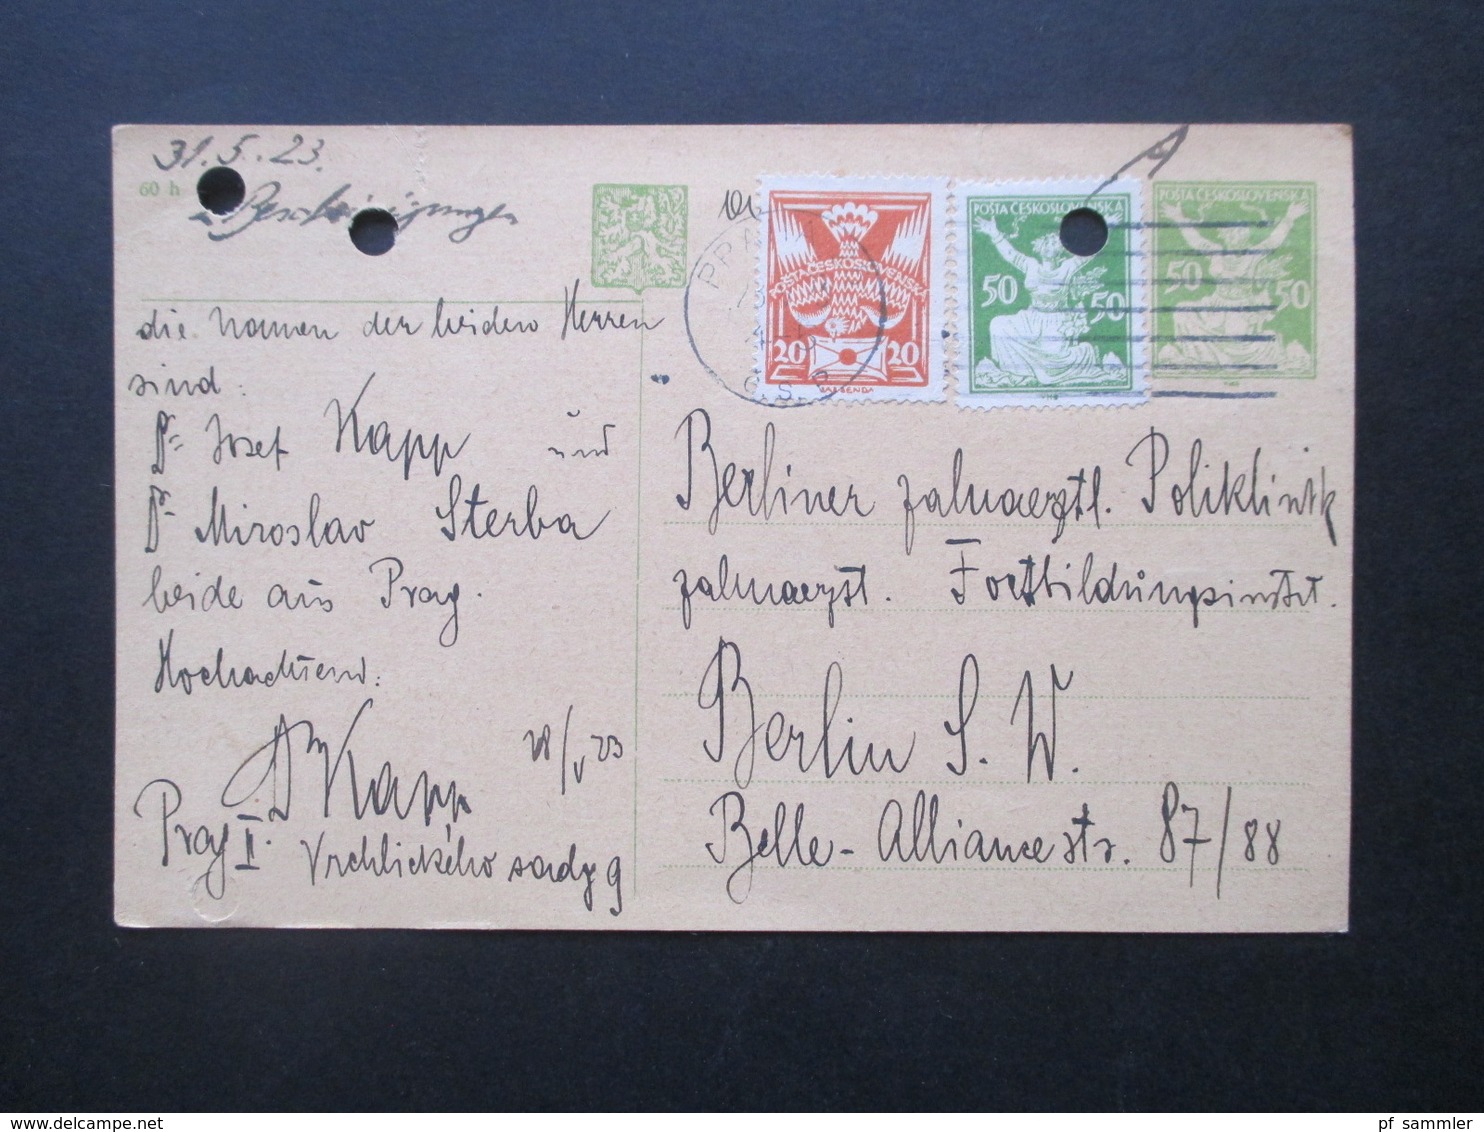 31.5.23.
60 h
Bescheinigungen
die Namen der beiden Herren
sind:
Dr Josef Kapp und
Dr Miroslav Sterba
beide aus Prag.
Hochachtend:
Dr Kapp 28/V 23
Prag II.
Vrchlického sady 9
PRAHA
Č.S.P.
POŠTA ČESKOSLOVENSKÁ
20 20
POŠTA ČESKOSLOVENSKÁ
50 50
POŠTA ČESKOSLOVENSKÁ
50 50
Berliner zahnaerztl. Poliklinik
zahnaerzt. Fortbildungsinstit.
Berlin S. W.
Belle-Alliancestr. 87/88
pf sammler